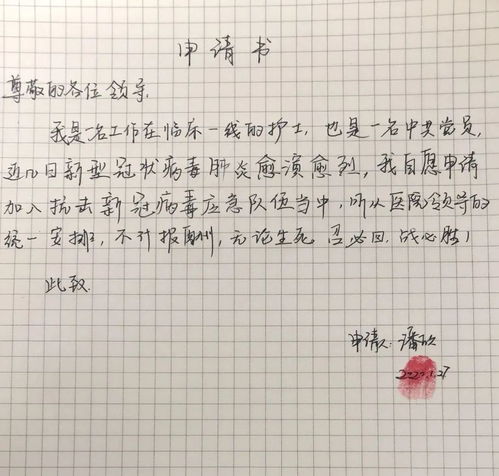 申请书
尊敬的各位领导,
我是一名工作在临床一线的护士,也是一名中共党员,
近几日新型冠状病毒肺炎愈演愈烈,我自愿申请
加入抗击新冠病毒应急队伍当中,听从医院领导的
统一安排,不计报酬,无论生死 召必回,战必胜!
此致.
申请人:潘欣
2020.1.27